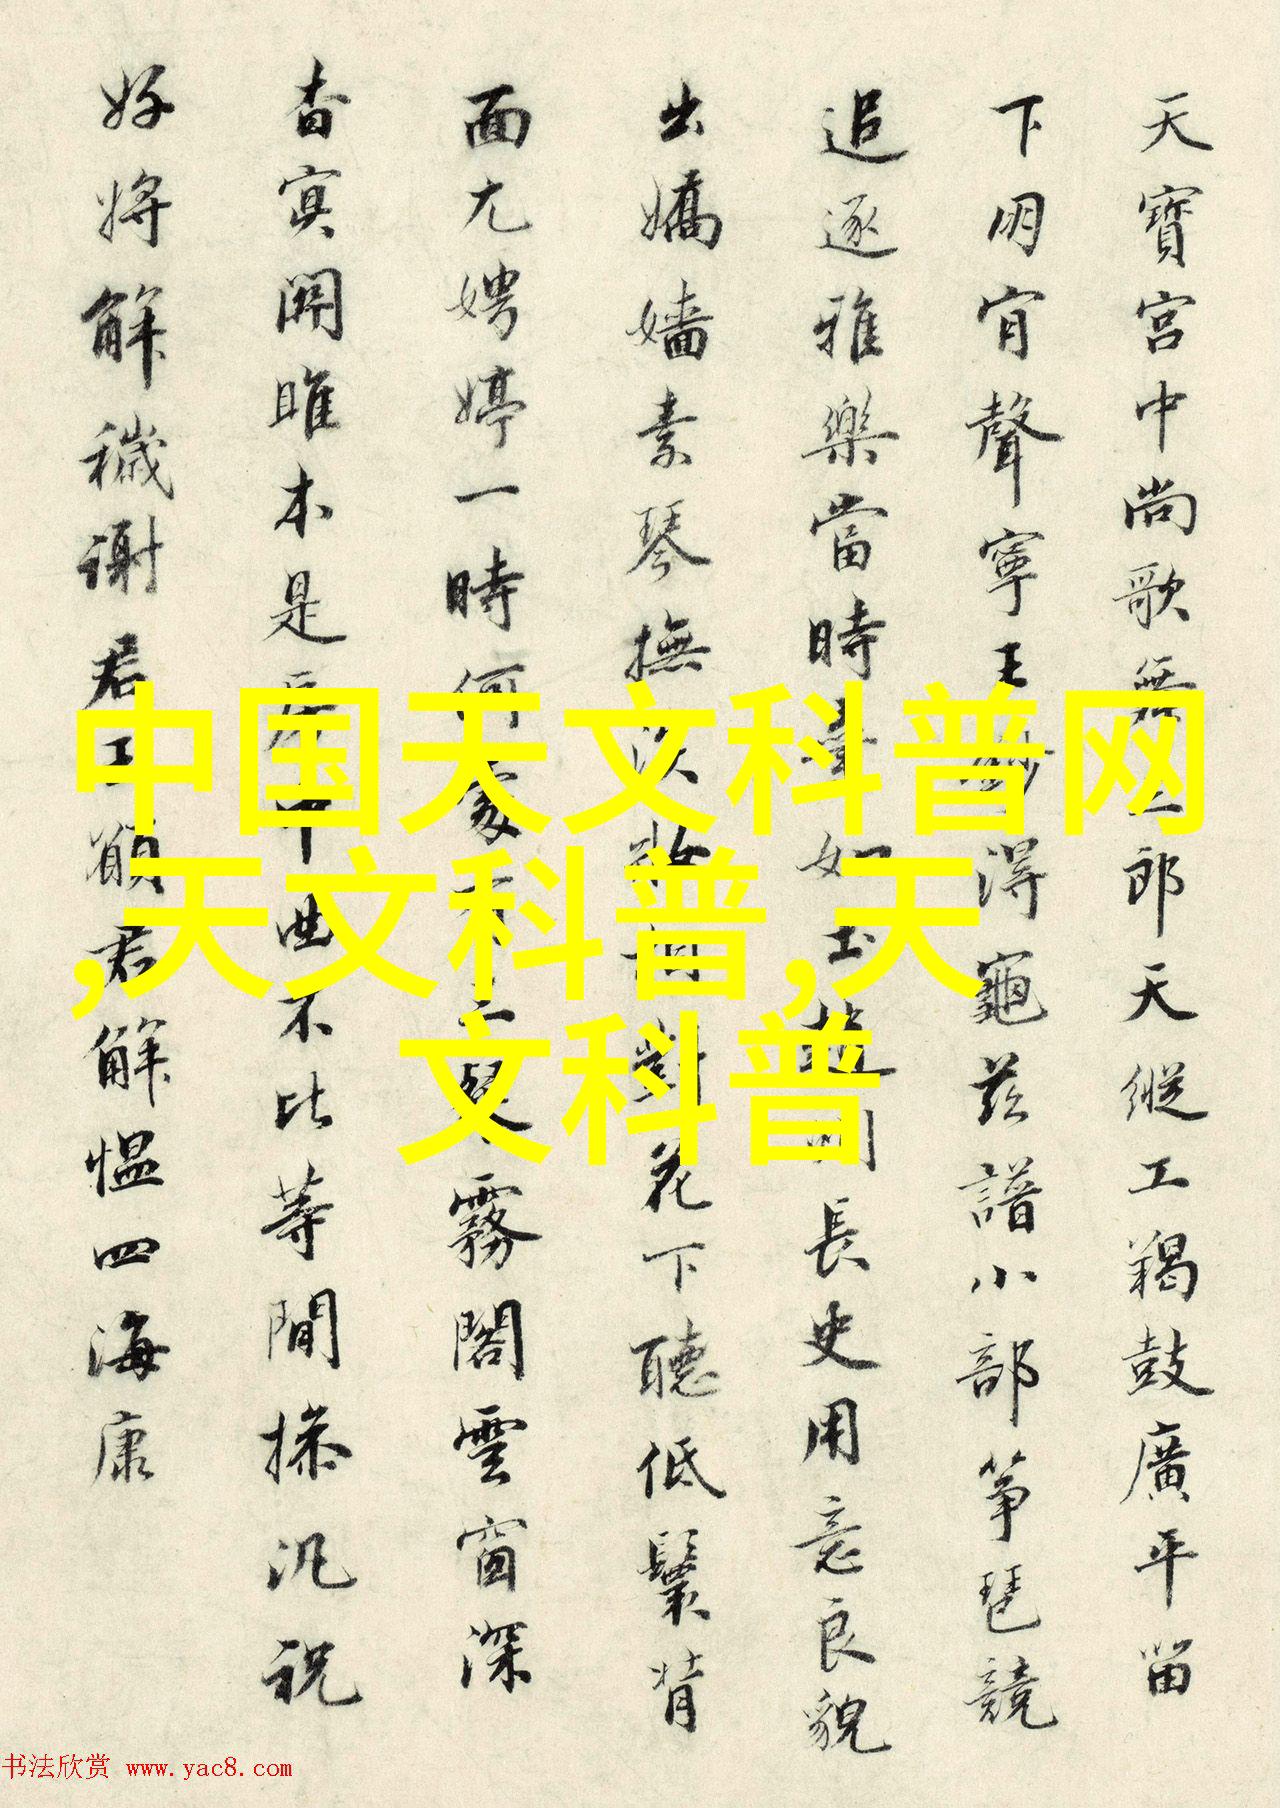 天寶宮中尚歌無三郎天縱工羯鼓廣平當
下明宵聲寧王妙得龜茲譜小部箏琵競
追逐雅樂當時如長史用意良貌
出嬌嬙素琴撫對花下聽低鬟背
面尤娉婷一時何霧閣雲窗深
杳冥關雎本是不比等閒操況祝
好將解穢謝君工願君解慍四海康
中国天文科普网
,天文科普,天
文科普
书法欣赏 www.yac8.com